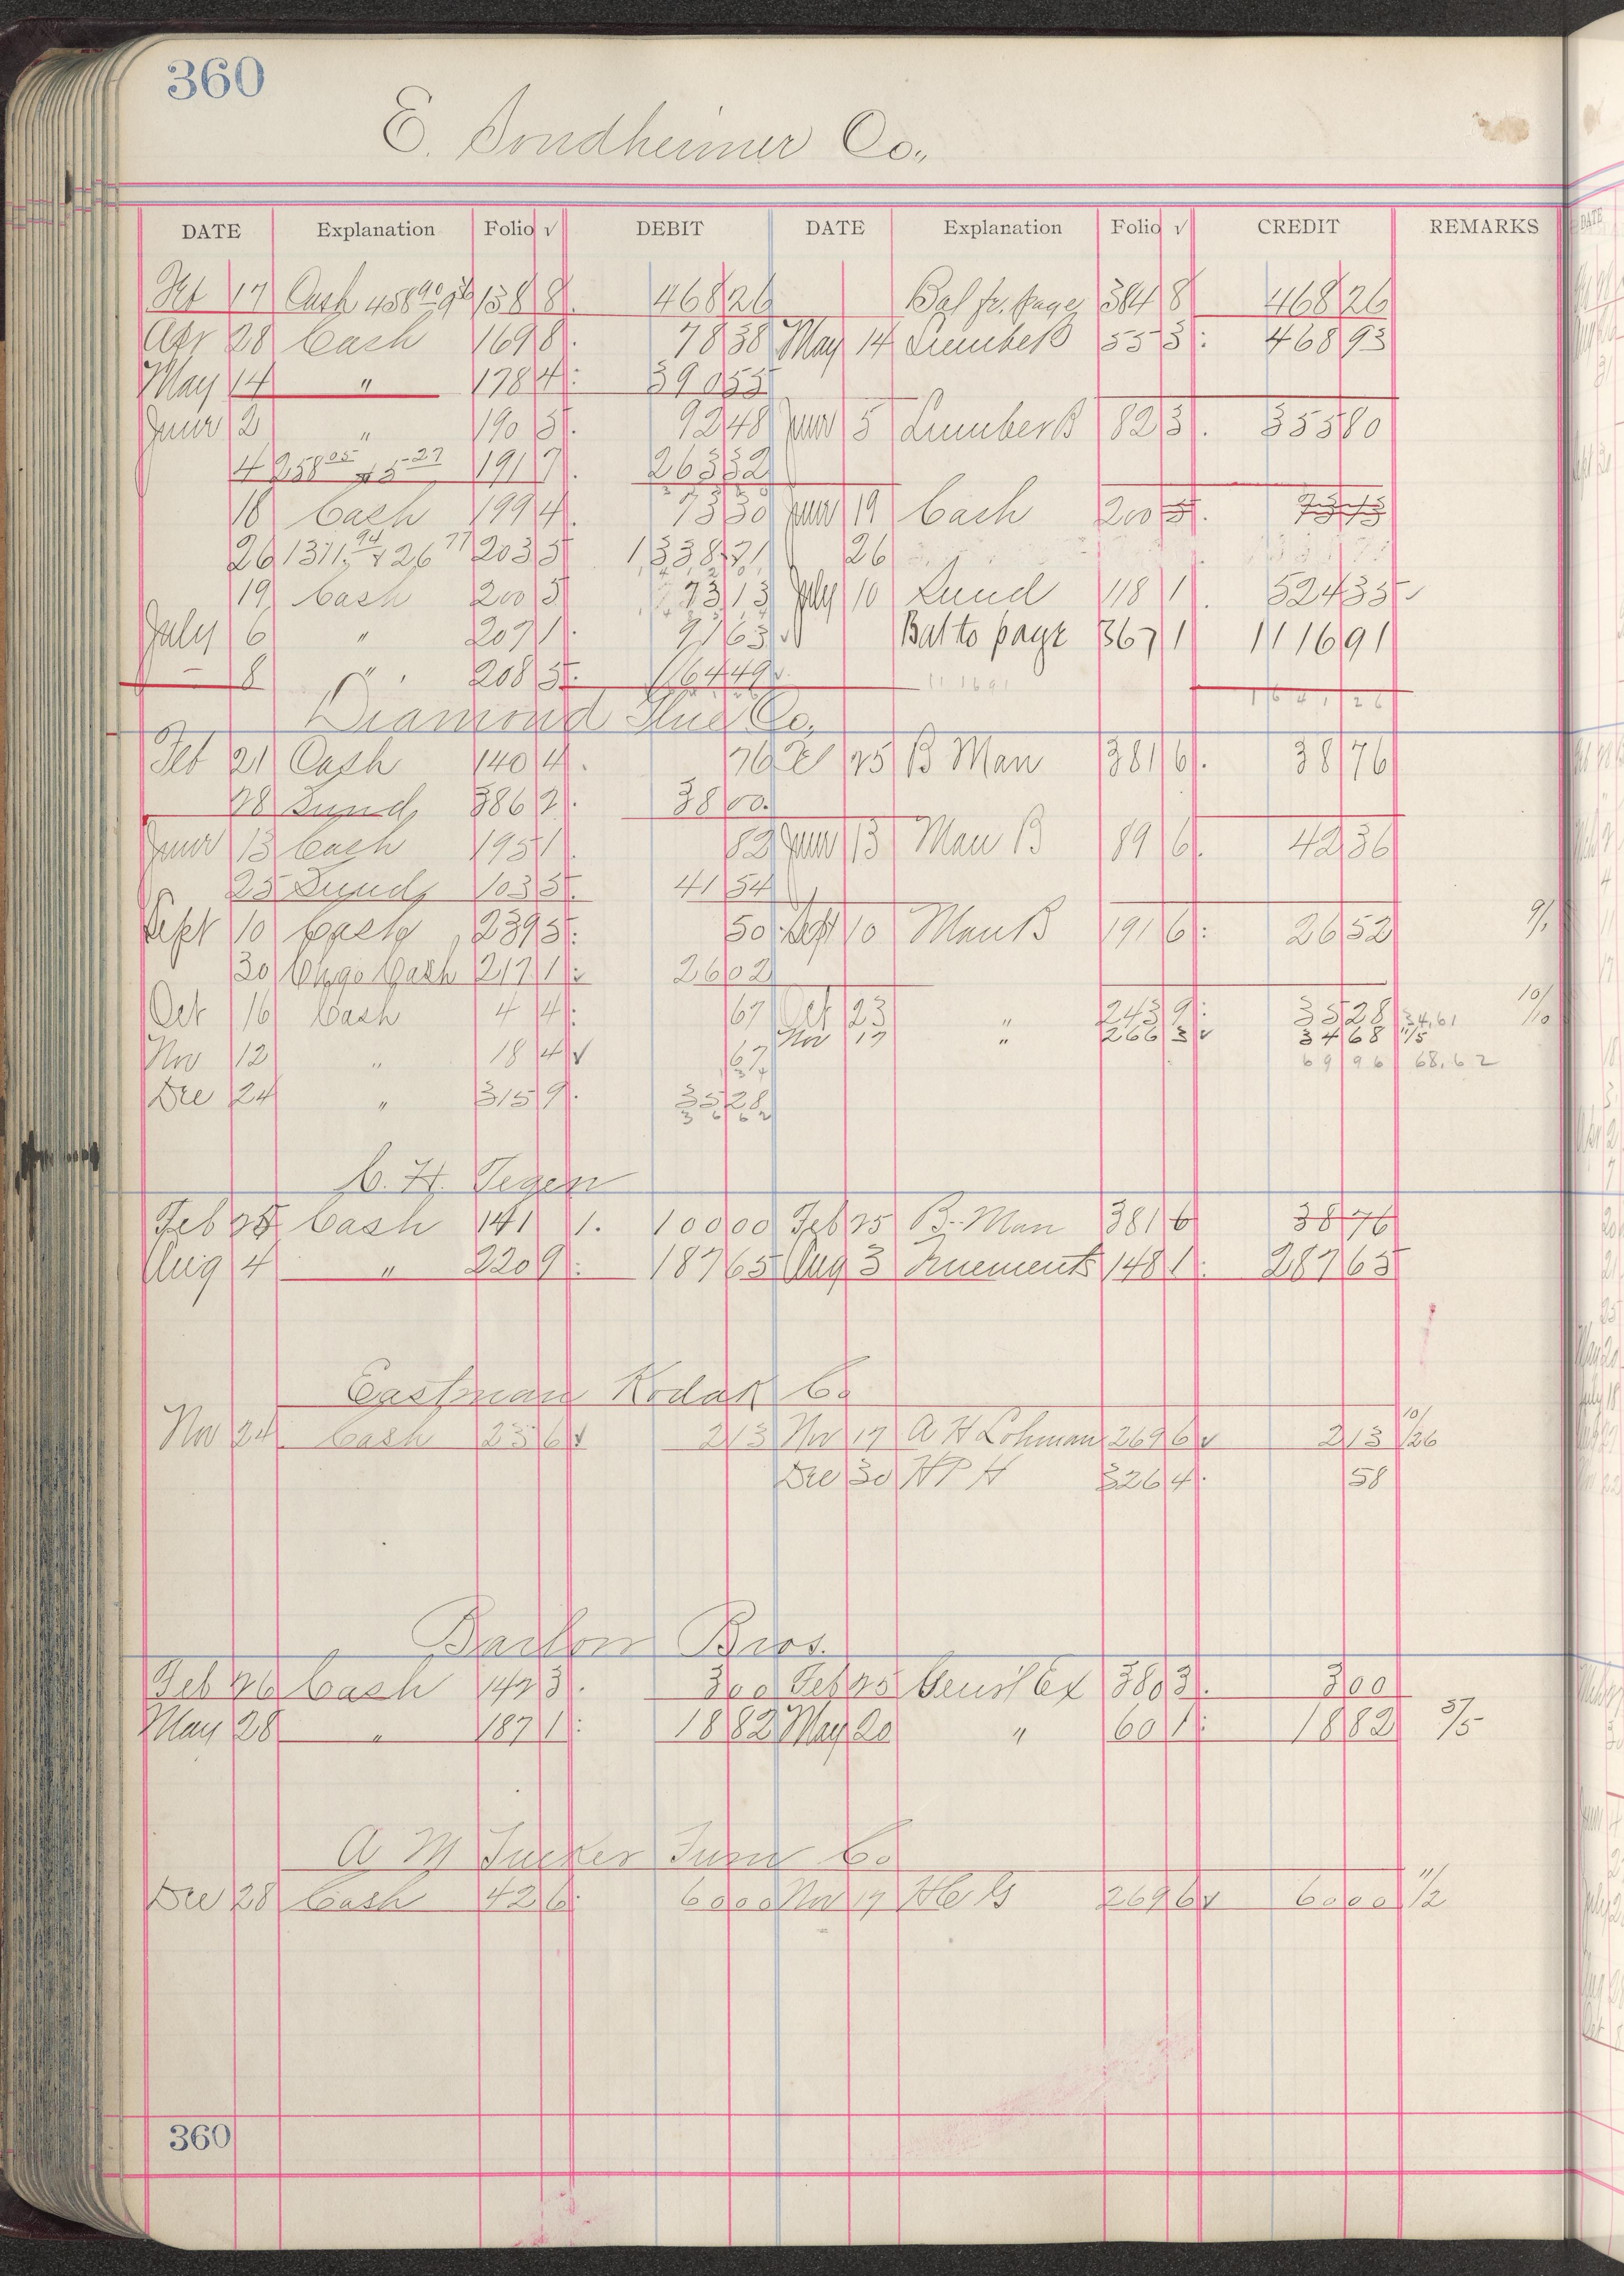 360
E. Sondheimer Co.,
DATE Explanation Folio √ DEBIT DATE Explanation Folio √ CREDIT REMARKS
17 Cash 138 8 468 26 Bal fr. page 384 8 468 26
Apr 28 Cash 169 8 78 38 May 14 Lumber B 55 3 468 93
May 14 " 178 4 390 55
June 2 " 190 5 92 48 June 5 Lumber B 82 3 355 80
4 258 05 + 5 27 191 7 263 32
18 Cash 199 4 73 30 June 19 Cash 200 5 73 13
26 1311 94 + 26 77 203 5 1338 71 26
19 Cash 200 5 73 13 July 10 Lund 118 1 524 35
July 6 " 207 1 91 63 Bal to page 367 1 1116 91
8 " 208 5 164 49
11 1691
Diamond Glue Co.,
Feb 21 Cash 140 4 76 25 B Man 381 6 38 76
28 Sund 386 2 38 00
June 13 Cash 195 1 82 June 13 Man B 89 6 42 36
25 Sund 103 5 41 54
Sept 10 Cash 239 5 50 Sept 10 Man B 191 6 26 52 9/
30 Chgo Cash 217 1 26 02
Oct 16 Cash 4 4 67 Oct 23 " 243 9 35 28 34.61 10/10
Nov 19 " 266 3 √ 34 68 11/5
Nov 12 " 18 4 √ 67 69 96 68.62
Dec 24 " 315 9 35 28
36 62
C. H. Tegen
Feb 25 Cash 141 1 100 00 Feb 25 B. Man 381 6 38 76
Aug 4 " 220 9 187 65 Aug 3 148 1 287 65
Eastman Kodak Co
Nov 24 Cash 23 6 √ 2 13 Nov 19 A H Lohman 269 6 √ 2 13 10/26
Dec 30 H P H 326 4 58
Barlow Bros.
Feb 26 Cash 142 3 3 00 Feb 25 Genl Ex 380 3 3 00
May 28 " 187 1 18 82 May 20 " 60 1 18 82 5/5
A M Tucker Furn Co
Dec 28 Cash 42 6 60 00 Nov 19 269 6 √ 60 00 11/2
360